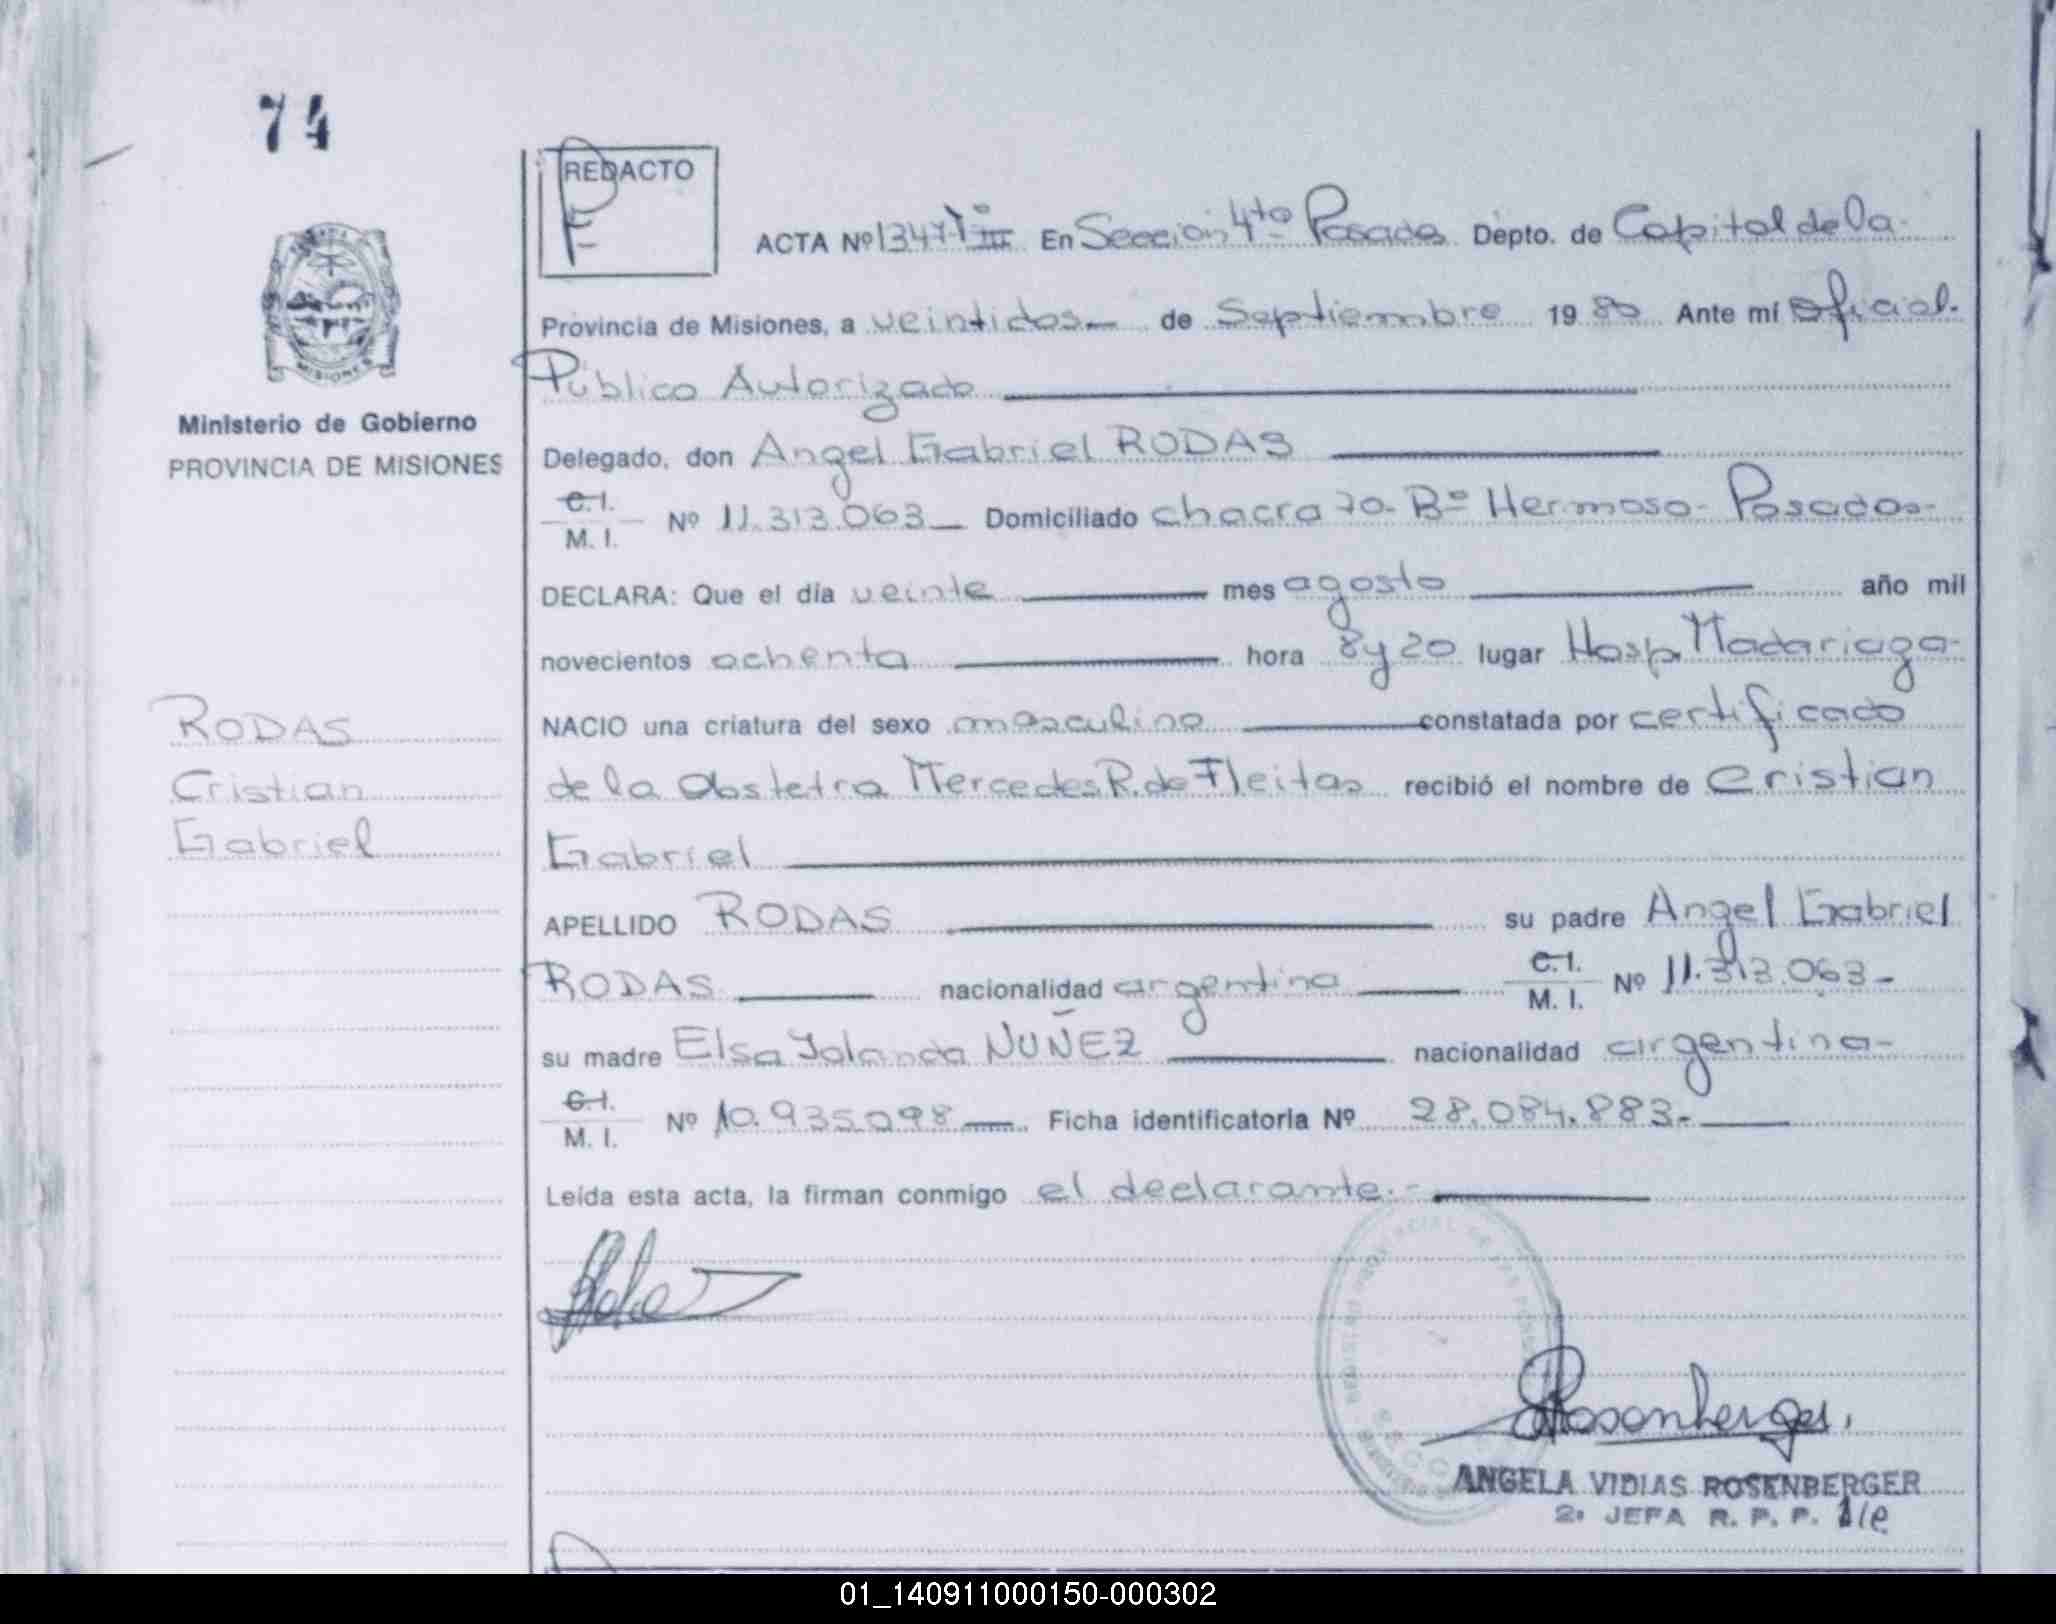 74
REDACTO
ACTA Nº 1347 Tº III En Sección 4ta Posadas Depto. de Capital de la
Provincia de Misiones, a veintidos de Septiembre 1980 Ante mí Oficial
Público Autorizado
Ministerio de Gobierno
PROVINCIA DE MISIONES
Delegado, don Angel Gabriel RODAS
C.I.
M. I. Nº 11.313.063 Domiciliado chacra 70- Bº Hermoso- Posadas-
DECLARA: Que el día veinte mes agosto año mil
novecientos ochenta hora 8 y 20 lugar Hosp. Madariaga-
RODAS
Cristian
Gabriel
NACIO una criatura del sexo masculino constatada por certificado
de la Obstetra Mercedes R. de Fleitas recibió el nombre de Cristian
Gabriel
APELLIDO RODAS su padre Angel Gabriel
RODAS nacionalidad argentina C.I.
M. I. Nº 11.313.063-
su madre Elsa Yolanda NUÑEZ nacionalidad argentina-
C.I.
M. I. Nº 10.935.098 Ficha identificatoria Nº 28.084.883.-
Leída esta acta, la firman conmigo el declarante.-
Rosenberger
ANGELA VIDIAS ROSENBERGER
2ª JEFA R. P. P. A/C
01_140911000150-000302